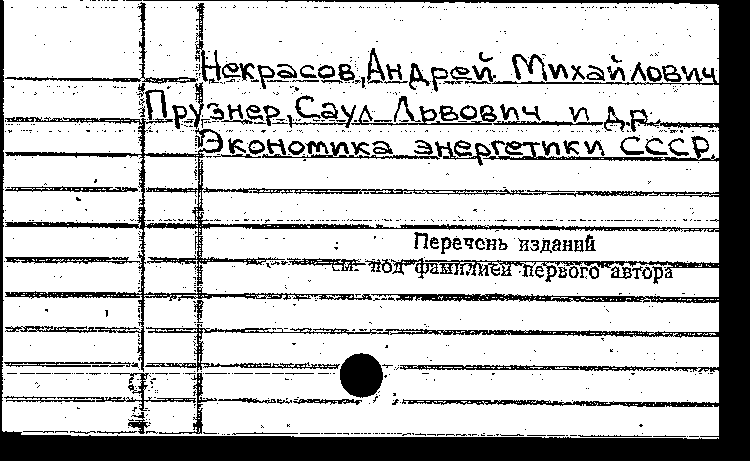 Некрасов, Андрей Михайлович
Прузнер, Саул Львович и др.
Экономика энергетики СССР.
Перечень изданий
см. под фамилией первого автора